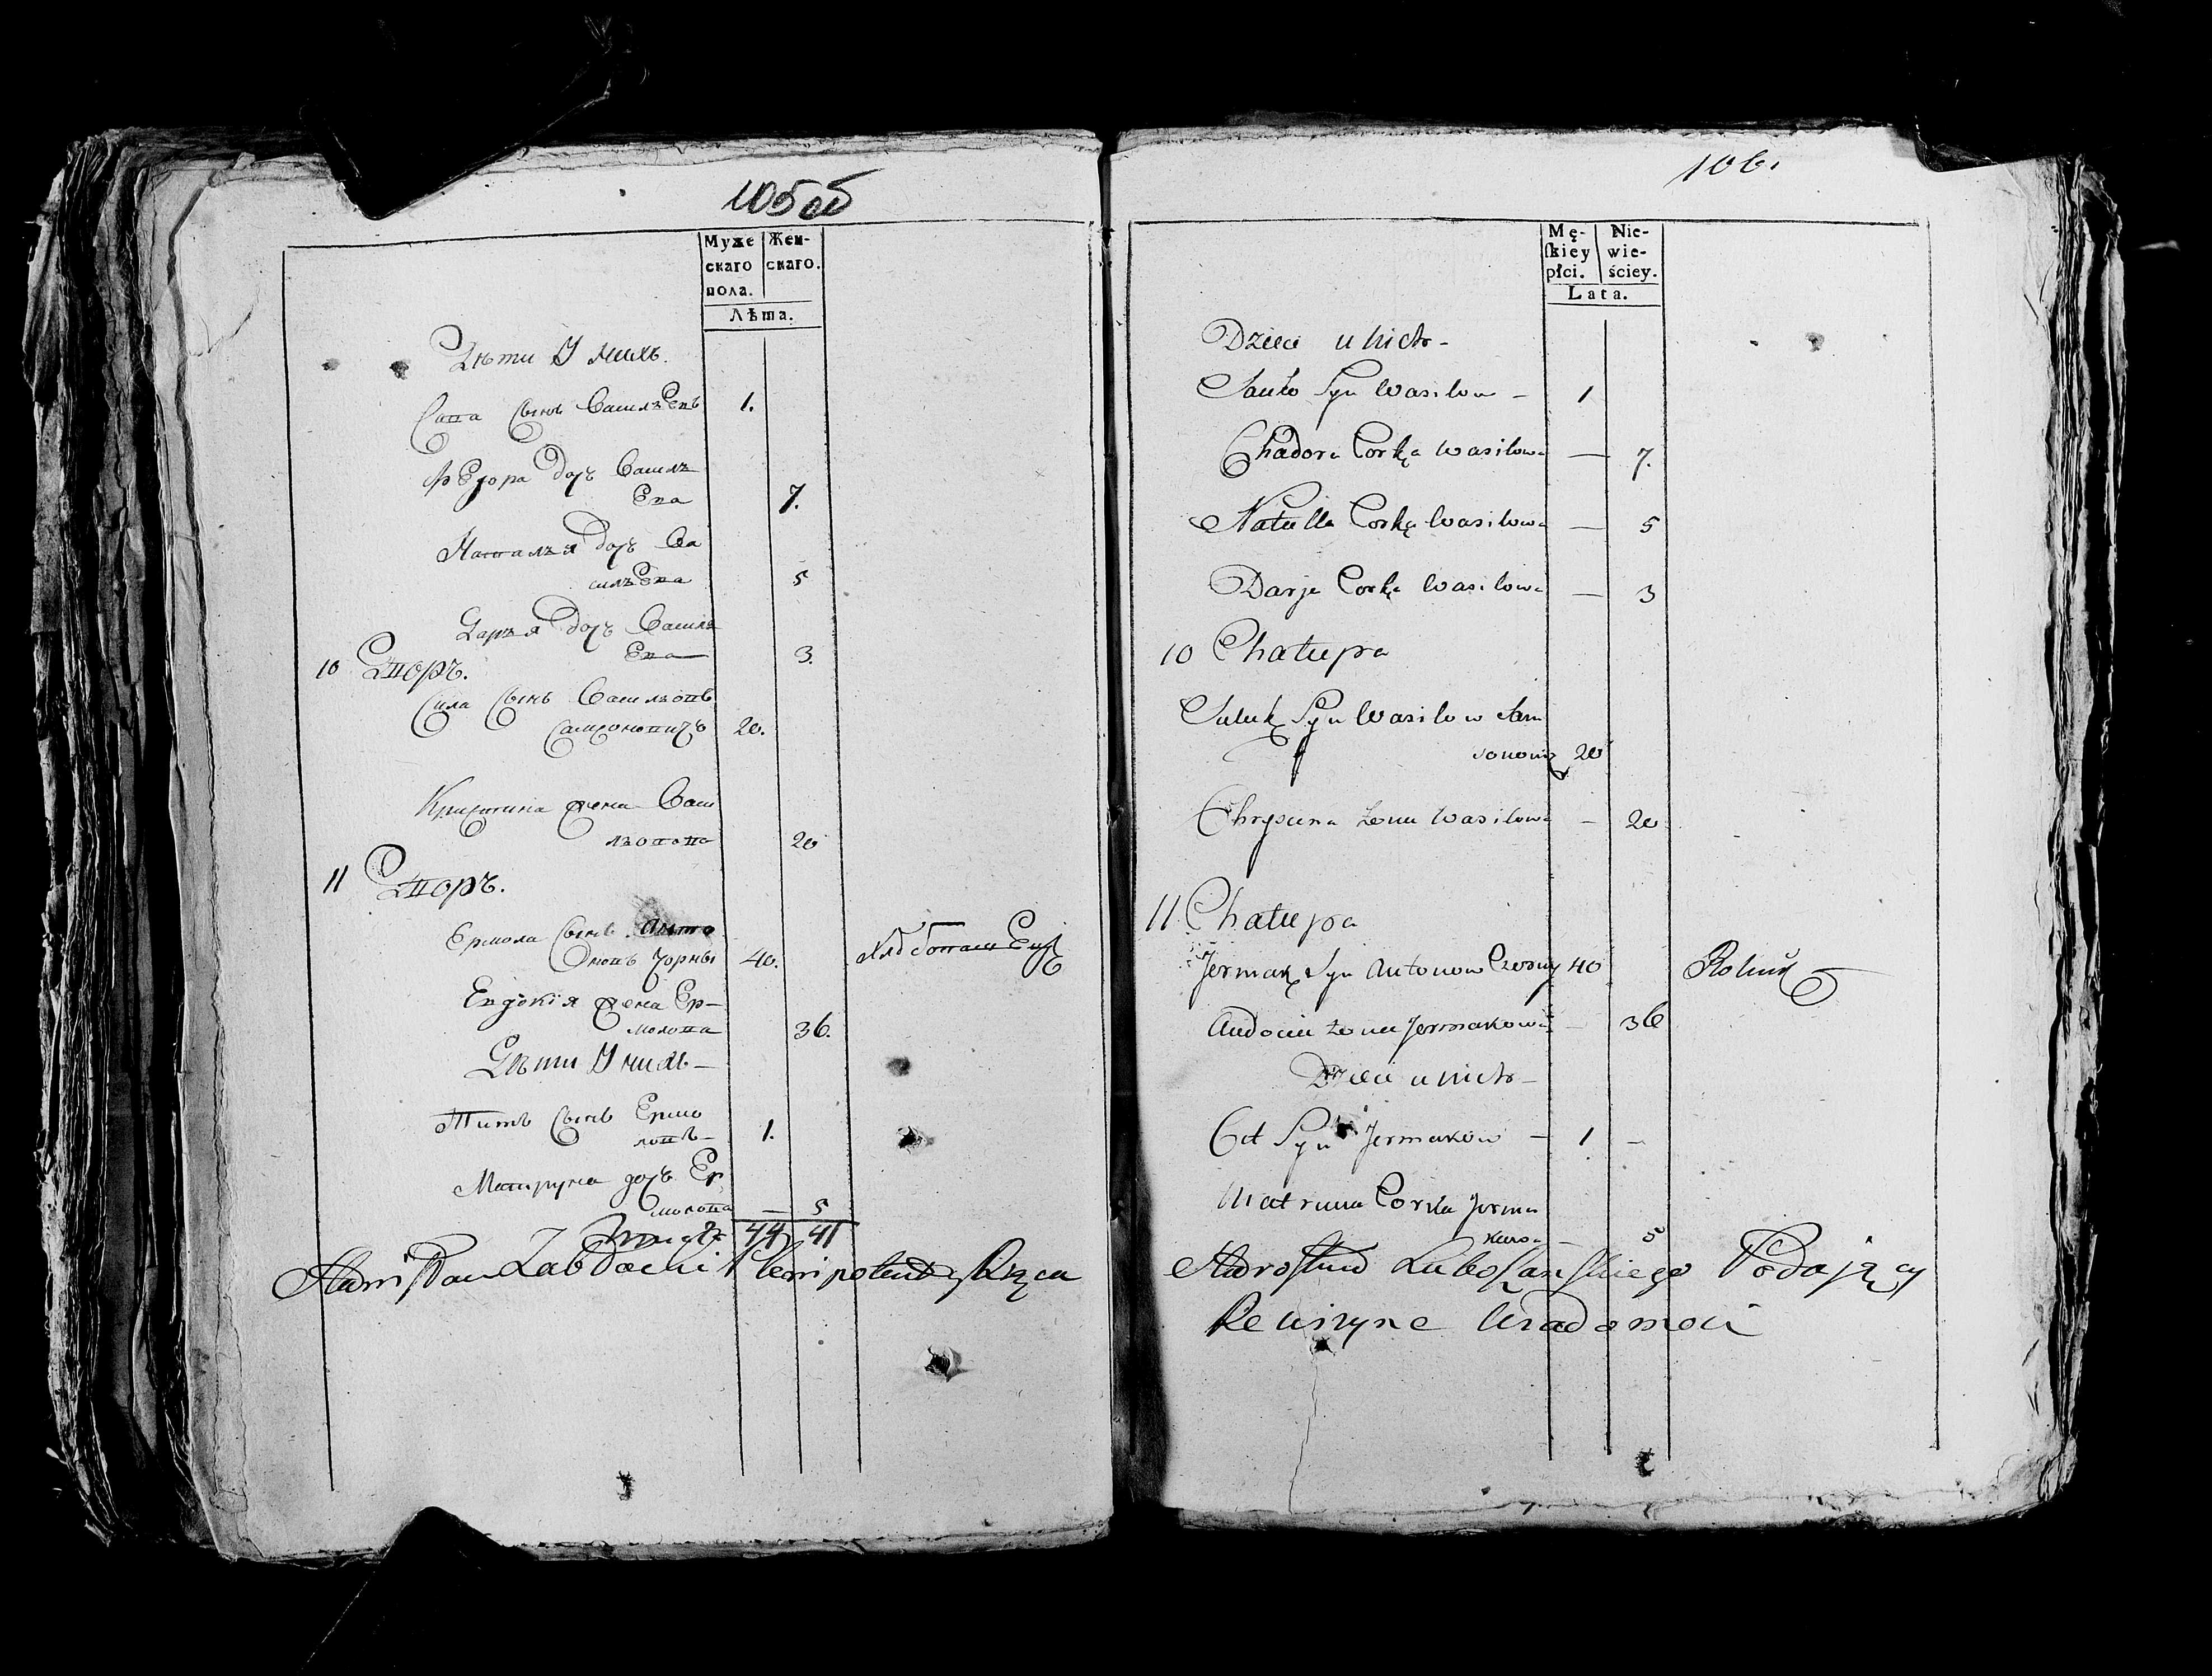 105 об
Муже
скаго
пола.
Жен-
скаго.
Лѣта.
Дѣти У нихъ.
Сава Сынъ ВасилъЕвъ 1.
ФЕдора Дочъ Василъ
Ева 7.
Наталъя Дочъ Ва
силъЕва 5
Даръя Дочъ Василъ
Ева 3.
10 Дворъ.
Сила Сынъ Василъовъ
Самсоновичъ 20.
Кристина жена Васи
лъовова 20
11 Дворъ.
Ермола Сынъ Анто
новъ Чорны 40. ХлѣбопашЕцъ
Евдокія жена Ер-
молова 36.
Дѣти У нихъ-
Титъ Сынъ Ермо
ловъ- 1.
Матруна дочъ Ер
молова — 5
44 41
Plenipotent Xiążęcia
106.
Mę-
skiey
płci.
Nie-
wie-
ściey.
Lata.
Dzieci u nich -
Sawko Syn Wasilow - 1
Chadora Corka Wasilowa — 7.
Natulla Corka Wasilowa — 5
Darja Corka Wasilowa — 3
10 Chałupa
Syn Wasilow Sam
sonowicz 20
Chrysuna żona Wasilowa - 20
11 Chałupa
Jermak Syn Antonow Czorny 40 Rolnik
Audocia żona Jermakowa - 36
Dzieci u nich -
Syn Jermakow - 1 -
Matruna Corka Jerma
kowa - 5
Starostwa Luboszańskiego Podający
Rewizyne Wiadomoci